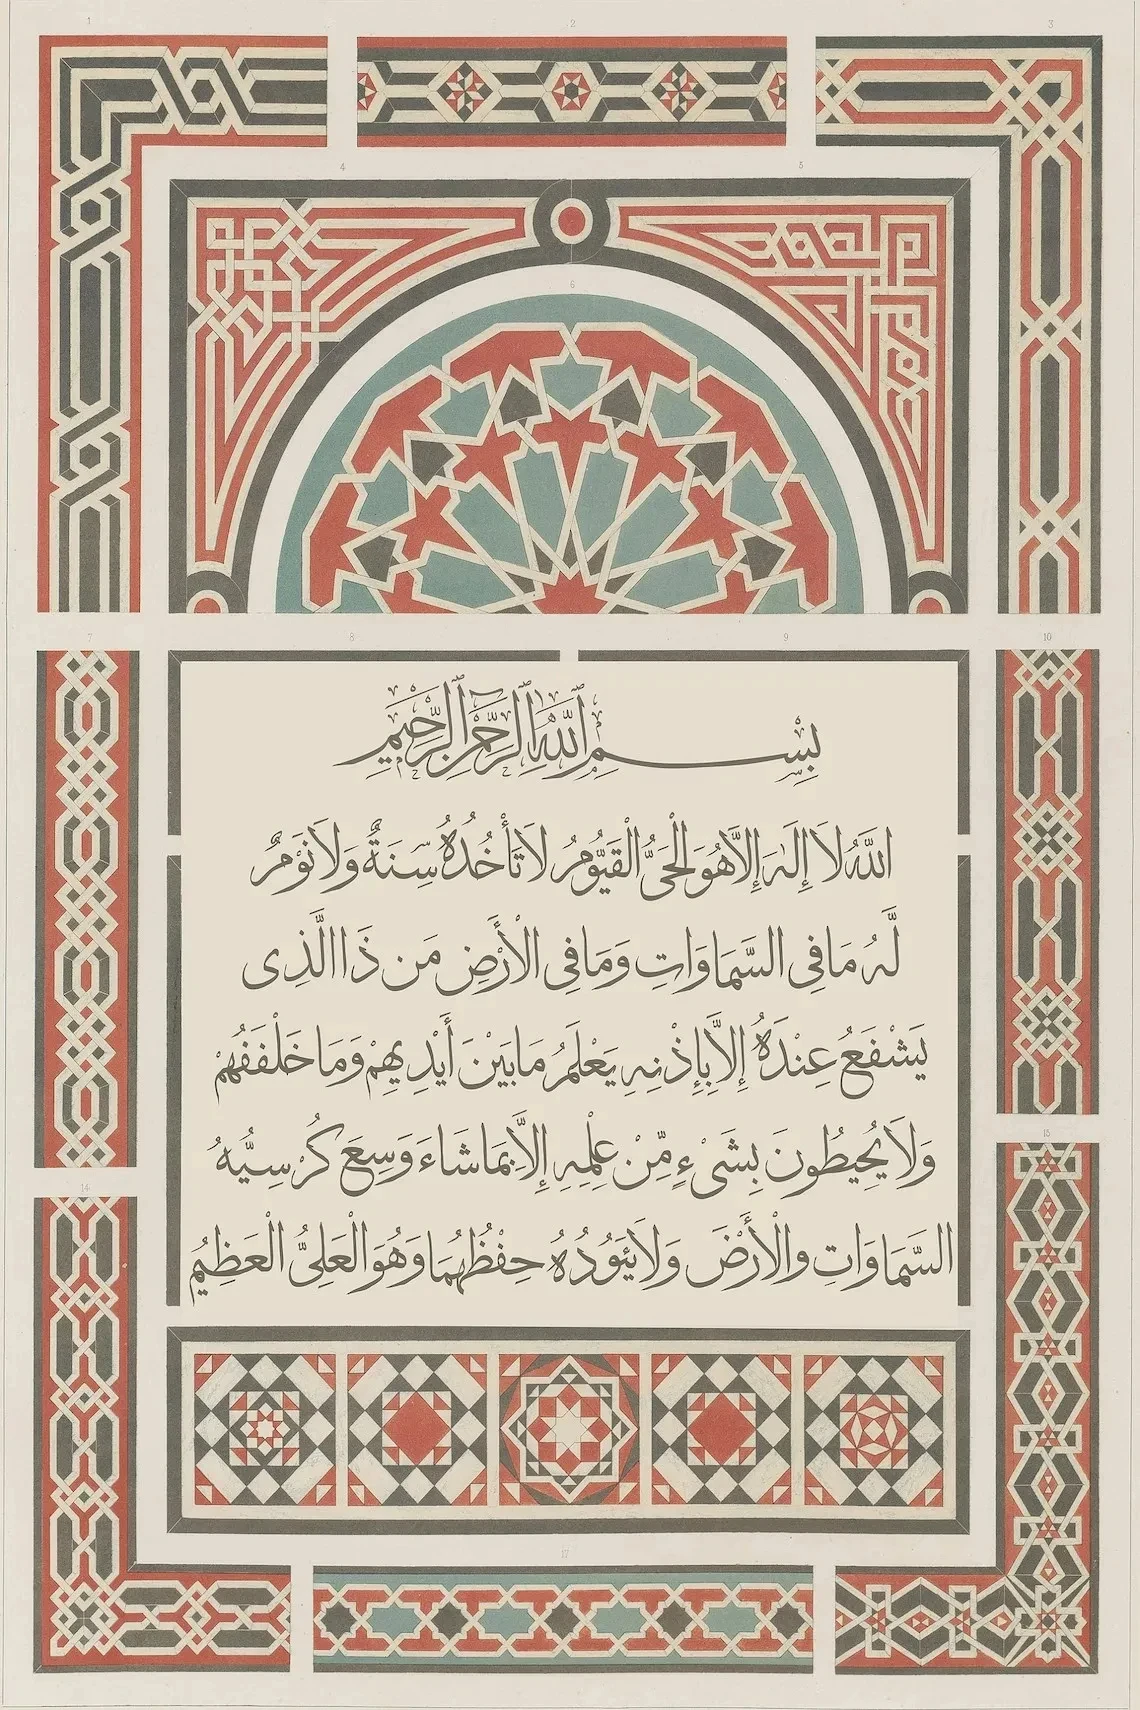 1 2 3
4 5
6
7 8 9 10
بِسْمِ ٱللَّهِ ٱلرَّحْمَٰنِ ٱلرَّحِيمِ
اللَّهُ لَا إِلَٰهَ إِلَّا هُوَ الْحَيُّ الْقَيُّومُ لَا تَأْخُذُهُ سِنَةٌ وَلَا نَوْمٌ
لَّهُ مَا فِي السَّمَاوَاتِ وَمَا فِي الْأَرْضِ مَن ذَا الَّذِي
يَشْفَعُ عِنْدَهُ إِلَّا بِإِذْنِهِ يَعْلَمُ مَا بَيْنَ أَيْدِيهِمْ وَمَا خَلْفَفُهُمْ
وَلَا يُحِيطُونَ بِشَيْءٍ مِّنْ عِلْمِهِ إِلَّا بِمَا شَاءَ وَسِعَ كُرْسِيُّهُ
السَّمَاوَاتِ والْأَرْضَ وَلَا يَئَوُدُهُ حِفْظُهُمَا وَهُوَ الْعَلِيُّ الْعَظِيمُ
15
14
17